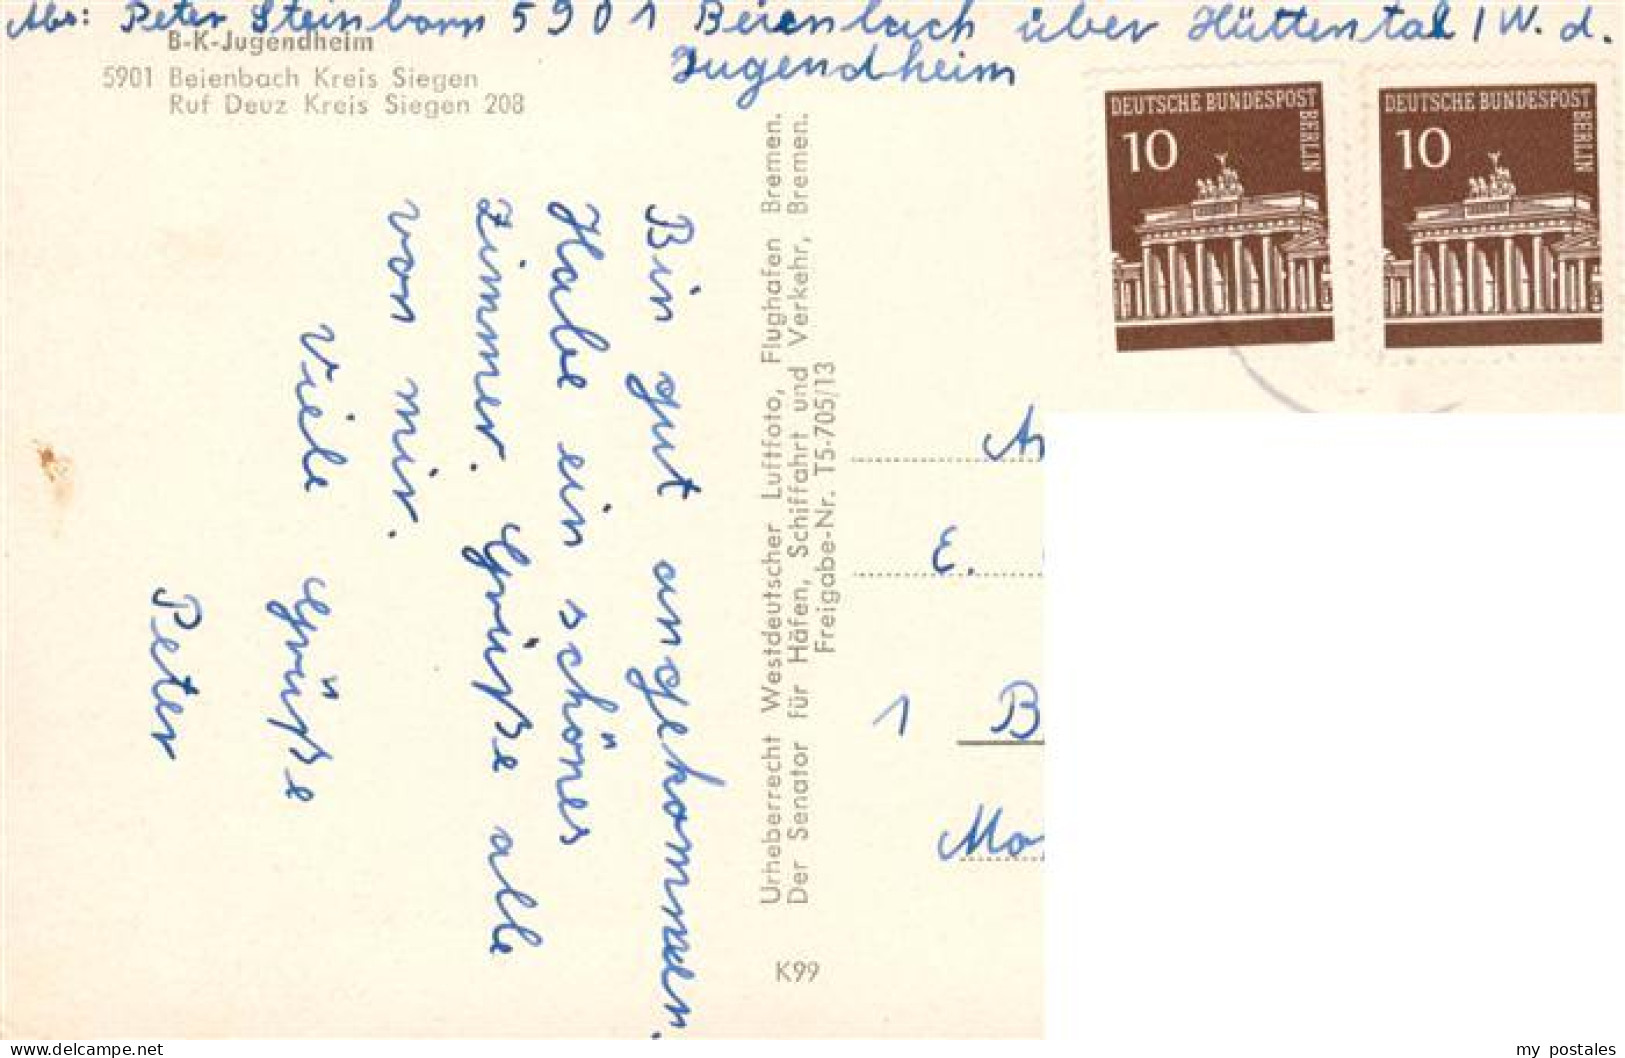 Abs: Peter Steinborn 5901 Beienbach über Hüttental / W. d.
Jugendheim
B-K-Jugendheim
5901 Beienbach Kreis Siegen
Ruf Deuz Kreis Siegen 208
DEUTSCHE BUNDESPOST
BERLIN
10
DEUTSCHE BUNDESPOST
BERLIN
10
Bin gut angekommen.
Habe ein schönes
Zimmer. Grüße alle
von mir.
Viele Grüße
Peter
Urheberrecht Westdeutscher Luftfoto, Flughafen Bremen.
Der Senator für Häfen, Schiffahrt und Verkehr, Bremen.
Freigabe-Nr. T5-705/13
K99
An
E.
1 B
Mo
delcampe.net
my postales